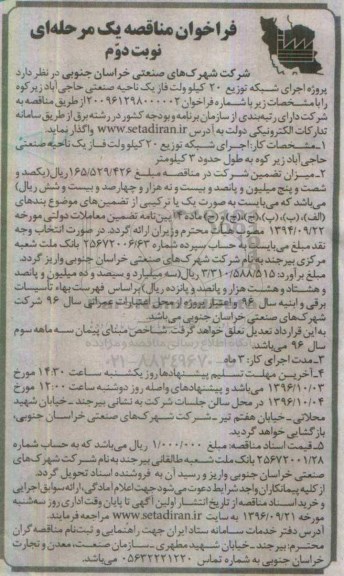 فراخوان مناقصه یک مرحله‌ای
نوبت دوّم
شرکت شهرک‌های صنعتی خراسان جنوبی در نظر دارد
پروژه اجرای شبکه توزیع ۲۰ کیلو ولت فاز یک ناحیه صنعتی حاجی آباد زیر کوه
را با مشخصات زیر با شماره فراخوان ۲۰۰۹۶۱۲۹۸۰۰۰۰۰۲ از طریق مناقصه به
شرکت دارای رتبه‌بندی از سازمان برنامه و بودجه کشور در رشته برق از طریق سامانه
تدارکات الکترونیکی دولت به آدرس www.setadiran.ir واگذار نماید.
۱-مشخصات کار: اجرای شبکه توزیع ۲۰ کیلو ولت فاز یک ناحیه صنعتی
حاجی آباد زیر کوه به طول حدود ۳ کیلومتر
۲-میزان تضمین شرکت در مناقصه مبلغ ۱۶۵/۵۲۹/۴۲۶ ریال (یکصد و
شصت و پنج میلیون و پانصد و بیست و نه هزار و چهارصد و بیست و شش ریال)
می‌باشد که می‌بایست به صورت یک یا ترکیبی از تضمین‌های موضوع بندهای
(الف)، (ب)، (پ)، (ج)، (چ) و (ح) ماده ۴ آیین‌نامه تضمین معاملات دولتی مورخه
۱۳۹۴/۰۹/۲۲ مصوب هیأت محترم وزیران ارائه گردد. در صورت انتخاب وجه
نقد مبلغ می‌بایست به حساب سپرده شماره ۲۵۶۷۲۰۰۶/۶۳ بانک ملت شعبه
مرکزی بیرجند به نام شرکت شهرک‌های صنعتی خراسان جنوبی واریز گردد.
مبلغ برآورد: ۳/۳۱۰/۵۸۸/۵۱۵ ریال (سه میلیارد و سیصد و ده میلیون و پانصد
و هشتاد و هشت هزار و پانصد و پانزده ریال) براساس فهرست بهاء تأسیسات
برقی و ابنیه سال ۹۶ و اعتبار پروژه از محل اعتبارات عمرانی سال ۹۶ شرکت
شهرک‌های صنعتی خراسان جنوبی می‌باشد.
به این قرارداد تعدیل تعلق خواهد گرفت. شاخص مبنای پیمان سه ماهه سوم
سال ۹۶ می‌باشد.
۳-مدت اجرای کار: ۳ ماه
۴-آخرین مهلت تسلیم پیشنهادها روز یکشنبه ساعت ۱۴:۳۰ مورخ
۱۳۹۶/۱۰/۰۳ می‌باشد و پیشنهادهای واصله روز دوشنبه ساعت ۱۲:۰۰ مورخ
۱۳۹۶/۱۰/۰۴ در محل سالن جلسات شرکت به نشانی بیرجند - خیابان شهید
محلاتی - خیابان هفتم تیر - شرکت شهرک‌های صنعتی خراسان جنوبی،
بازگشایی خواهد گردید.
۵-قیمت اسناد مناقصه: مبلغ ۱/۰۰۰/۰۰۰ ریال می‌باشد که به حساب شماره
۲۵۶۷۲۰۰۱/۲۸ بانک ملت شعبه طالقانی بیرجند به نام شرکت شهرک‌های
صنعتی خراسان جنوبی واریز و رسید آن به فروشنده اسناد تحویل گردد.
از کلیه پیمانکاران واجد شرایط دعوت می‌شود جهت اعلام آمادگی، ارائه سوابق اجرایی
و خرید اسناد مناقصه از تاریخ انتشار اولین آگهی تا پایان وقت اداری روز سه‌شنبه
مورخه ۱۳۹۶/۰۹/۲۱ به سایت www.setadiran.ir مراجعه فرمایند.
آدرس دفتر خدمات سامانه ستاد ایران جهت راهنمایی و ثبت‌نام مناقصه گران
محترم: بیرجند - خیابان شهید مطهری - سازمان صنعت، معدن و تجارت
خراسان جنوبی به شماره تماس ۰۵۶۳۲۲۲۱۲۲۰ می‌باشد.